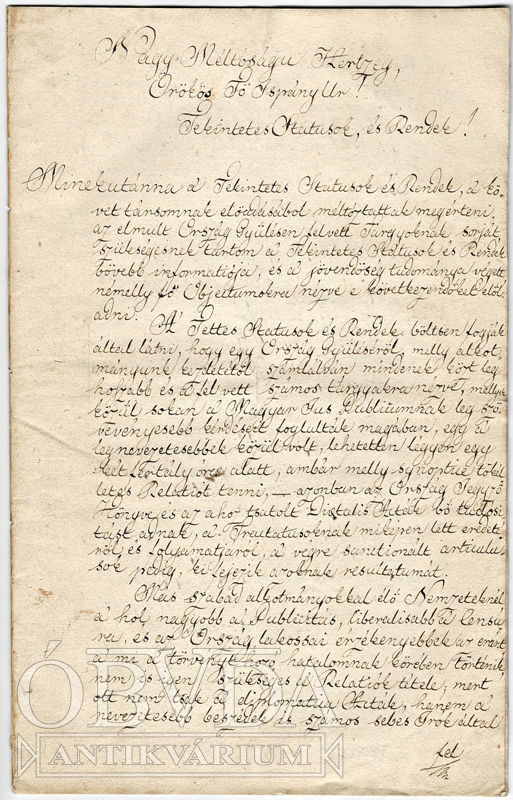 Nagy Méltóságu Hertzeg,
Örökös Fő Ispány Ur!
Tekintetes Statusok, és Rendek!
Minekutánna a Tekintetes Statusok és Rendek, a kö-
vet társomnak elöadásából méltóztattak megérteni,
az elmult Ország Gyülésen felvett Tárgyoknak sorját
szükségesnek tartom a Tekintetes Státusok és Rendek
bövebb informatiója, és a jövendöség tudománya végett
némelly fő Objectumokra nézve e következendőket elöl
adni.
A Tettes Statusok és Rendek böltsen fogják
által látni, hogy egy Ország Gyülésiröl, melly alkot-
mányunk kezdetétöl számlálván mindenek közt leg
hoszabb és a fel vett számos tárgyakra nézve, mellyek
közül sokan a Magyar Jus Publicumnak leg szö-
vevényesebb kérdéseit foglalták magában, egy a
legnevezetesebbek közül volt, lehetetlen légyen egy
két fertály óra alatt, ámbár melly synoptice töké
letes Relatiót tenni, — azonban az Ország Jegyző
Könyve, és az ahoz tsatolt Diætalis Acták bö tudosi
tást adnak, a Tractatusoknak miképen lett eredeté
röl, és folyamatjáról, a végre sanctionált articulu-
sok pedig, ki fejezik azoknak resultátumát.
Más szabad alkotmányokkal élő Nemzeteknél
a hol nagyobb a Publicitás, liberálisabb a Censu
ra, és az Ország lakossai érzékenyebbek az eránt
a mi a törvényt hozó hatalomnak körében történik,
nem is igen szükséges a Relatiók tétele, mert
ott nem tsak a diplomatica Acták, hanem a
nevezetesebb beszédek is számos sebes Irók által
fel
ÓBUDA
ANTIKVÁRIUM